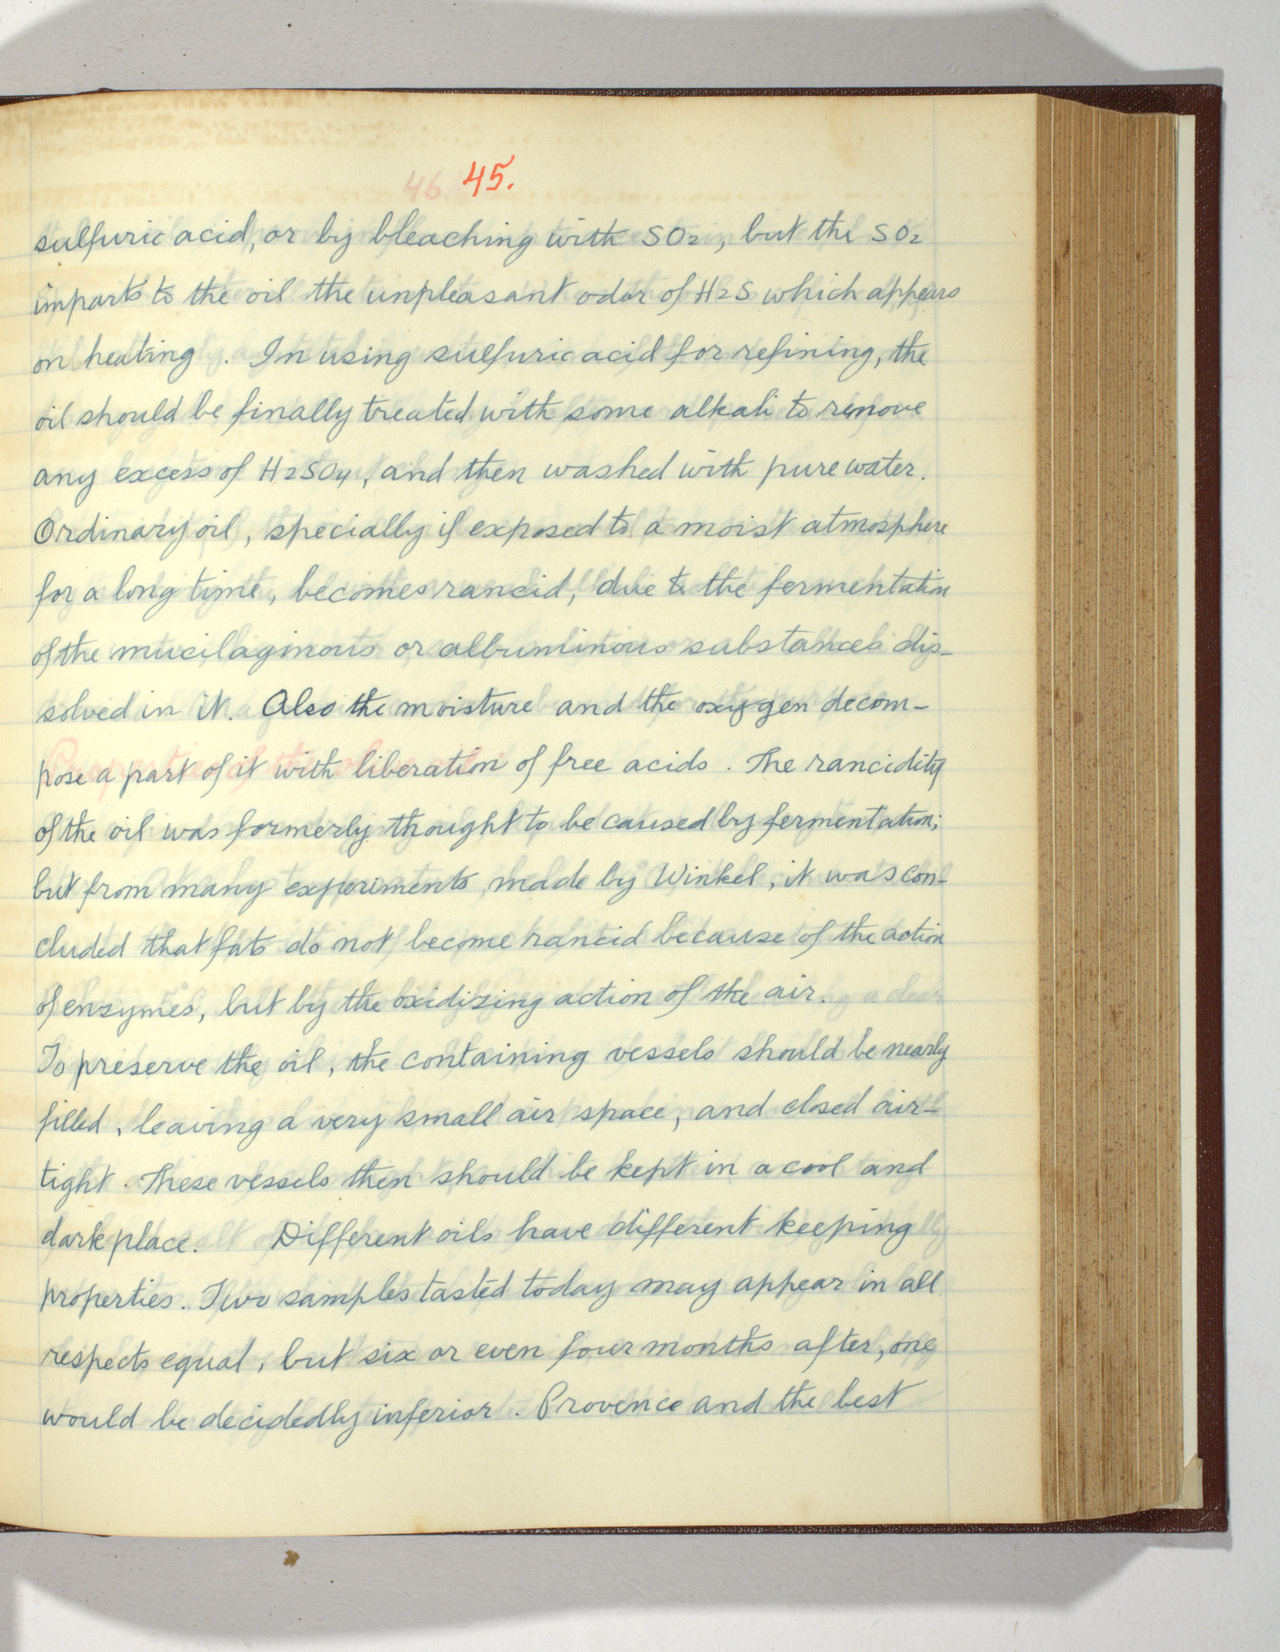 45.
sulfuric acid, or by bleaching with SO2, but the SO2
imparts to the oil the unpleasant odor of H2S which appears
on heating. In using sulfuric acid for refining, the
oil should be finally treated with some alkali to remove
any excess of H2SO4, and then washed with pure water.
Ordinary oil, specially if exposed to a moist atmosphere
for a long time, becomes rancid, due to the fermentation
of the mucilaginous or albuminous substances dis-
solved in it. Also the moisture and the oxygen decom-
pose a part of it with liberation of free acids. The rancidity
of the oil was formerly thought to be caused by fermentation;
but from many experiments made by Winkel, it was con-
cluded that fats do not become rancid because of the action
of enzymes, but by the oxidizing action of the air.
To preserve the oil, the containing vessels should be nearly
filled, leaving a very small air space, and closed air-
tight. These vessels then should be kept in a cool and
dark place. Different oils have different keeping
properties. Two samples tasted today may appear in all
respects equal, but six or even four months after, one
would be decidedly inferior. Provence and the best